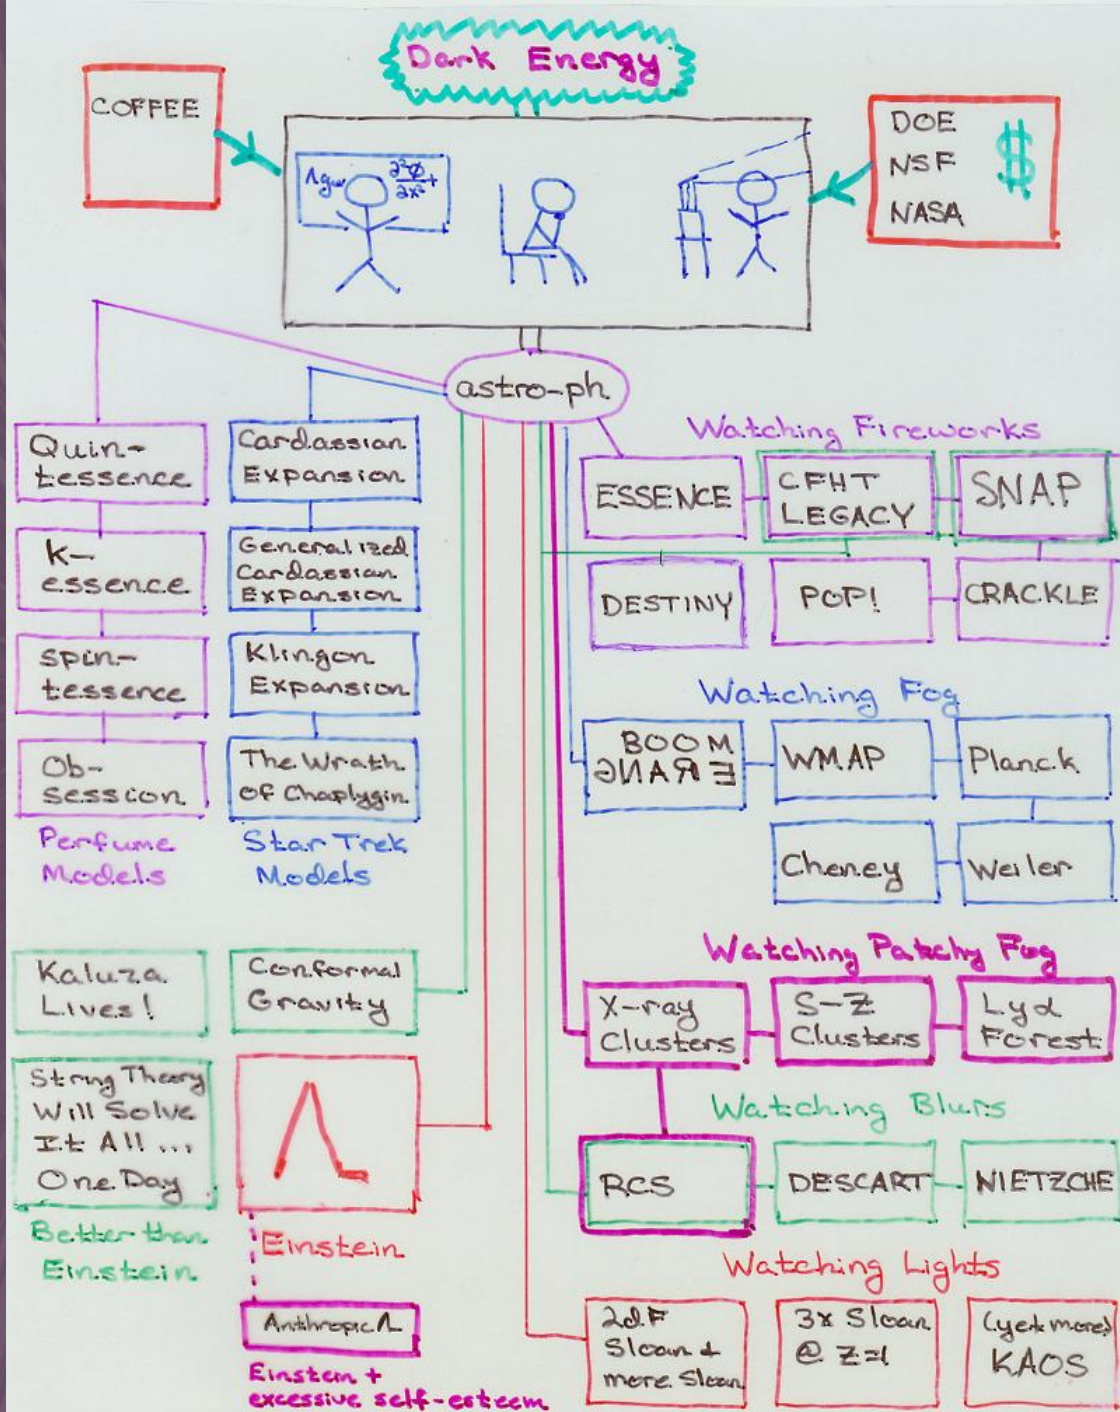 Dark Energy
COFFEE
DOE
NSF
NASA
$
Λgμν
∂²Φ
∂x² +
astro-ph
Quin-
tessence
k-
essence
spin-
tessence
Ob-
session
Perfume
Models
Cardassian
Expansion
Generalized
Cardassian
Expansion
Klingon
Expansion
The Wrath
Of Chaplygin
Star Trek
Models
Kaluza
Lives!
Conformal
Gravity
String Theory
Will Solve
It All ...
One Day
Better than
Einstein
Λ
Einstein
Anthropic Λ
Einstein +
excessive self-esteem
Watching Fireworks
ESSENCE
CFHT
LEGACY
SNAP
DESTINY
POP!
CRACKLE
Watching Fog
BOOM
ERANG
WMAP
Planck
Cheney
Weiler
Watching Patchy Fog
X-ray
Clusters
S-Z
Clusters
Lyα
Forest
Watching Blurs
RCS
DESCART
NIETZCHE
Watching Lights
2dF
Sloan +
more Sloan
3x Sloan
@ z=1
(yet more)
KAOS